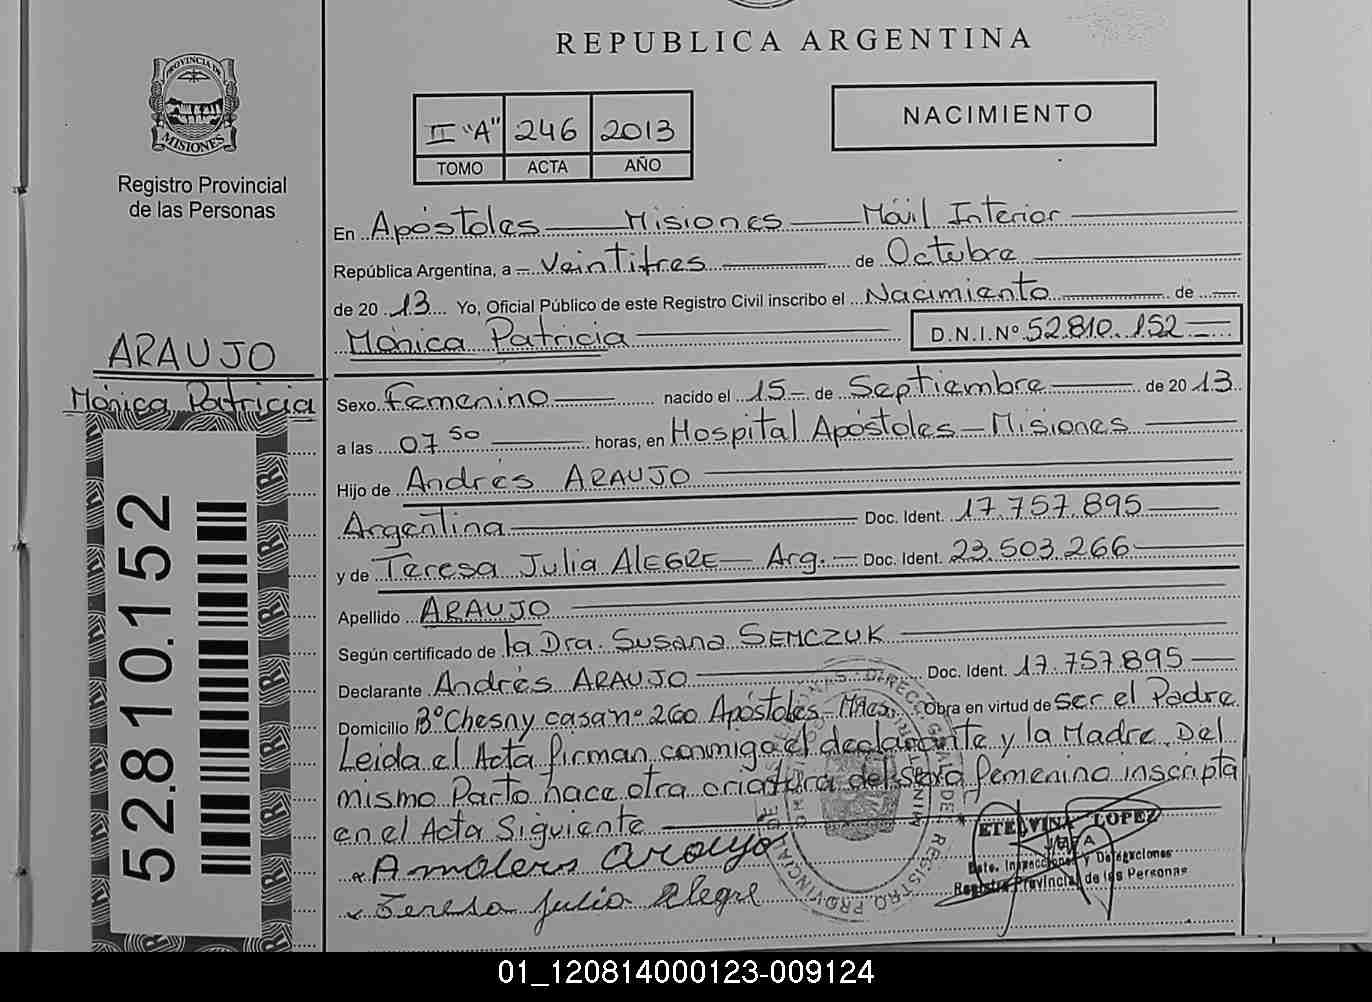 REPUBLICA ARGENTINA
PROVINCIA DE
MISIONES
Registro Provincial
de las Personas
II "A" 246 2013
TOMO ACTA AÑO
NACIMIENTO
En Apóstoles Misiones Móvil Interior
República Argentina, a Veintitres de Octubre
de 20 13 Yo, Oficial Público de este Registro Civil inscribo el Nacimiento de
Mónica Patricia D.N.I.Nº 52.810.152
ARAUJO
Mónica Patricia
Sexo Femenino nacido el 15 de Septiembre de 20 13
a las 07 50 horas, en Hospital Apóstoles - Misiones
Hijo de Andrés ARAUJO
Argentina Doc. Ident. 17.757.895
y de Teresa Julia ALEGRE Arg. Doc. Ident. 23.503.266
Apellido ARAUJO
Según certificado de la Dra. Susana SEMCZUK
Declarante Andrés ARAUJO Doc. Ident. 17.757.895
Domicilio Bº Chesny casa nº 260 Apóstoles - Mnes. Obra en virtud de ser el Padre
Leida el Acta firman conmigo el declarante y la Madre. Del
mismo Parto nace otra criatura del sexo femenino inscripta
en el Acta Siguiente
araujo
Teresa Julia Alegre
ETELVINA LOPEZ
Dpto. Inspecciones y Delegaciones
Registro Provincial de las Personas
52.810.152
01_120814000123-009124